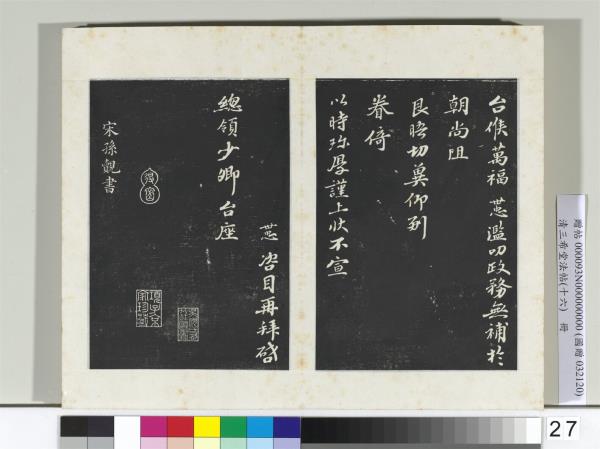 台候萬福 懃濫叨政務無補於
朝尚阻
良晤切冀仰到
眷倚
以時珎厚謹上狀不宣
懃 咨目再拜啓
總領少卿台座
宋孫覿書
項子京家珍藏
贈帖 000093N000000000 (國贈 032120)
清三希堂法帖(十六) 冊
27